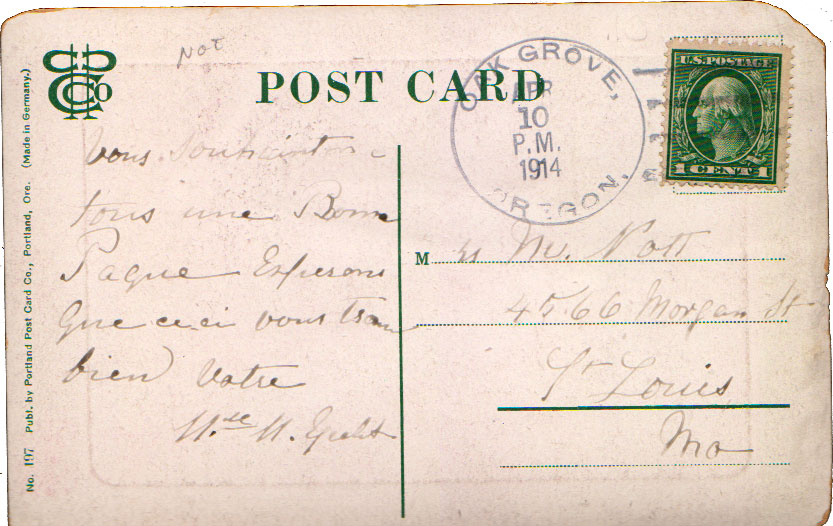 Not
POST CARD
OAK GROVE,
APR
10
P.M.
1914
OREGON.
U.S. POSTAGE
1 CENT 1
Vous Souhaiton
tous une Bonne
Paque Esperons
Que ceci vous
bien Votre
M
M. Nott
4566 Morgan St
St Louis
Mo
No. 197 Publ. by Portland Post Card Co., Portland, Ore. (Made in Germany.)